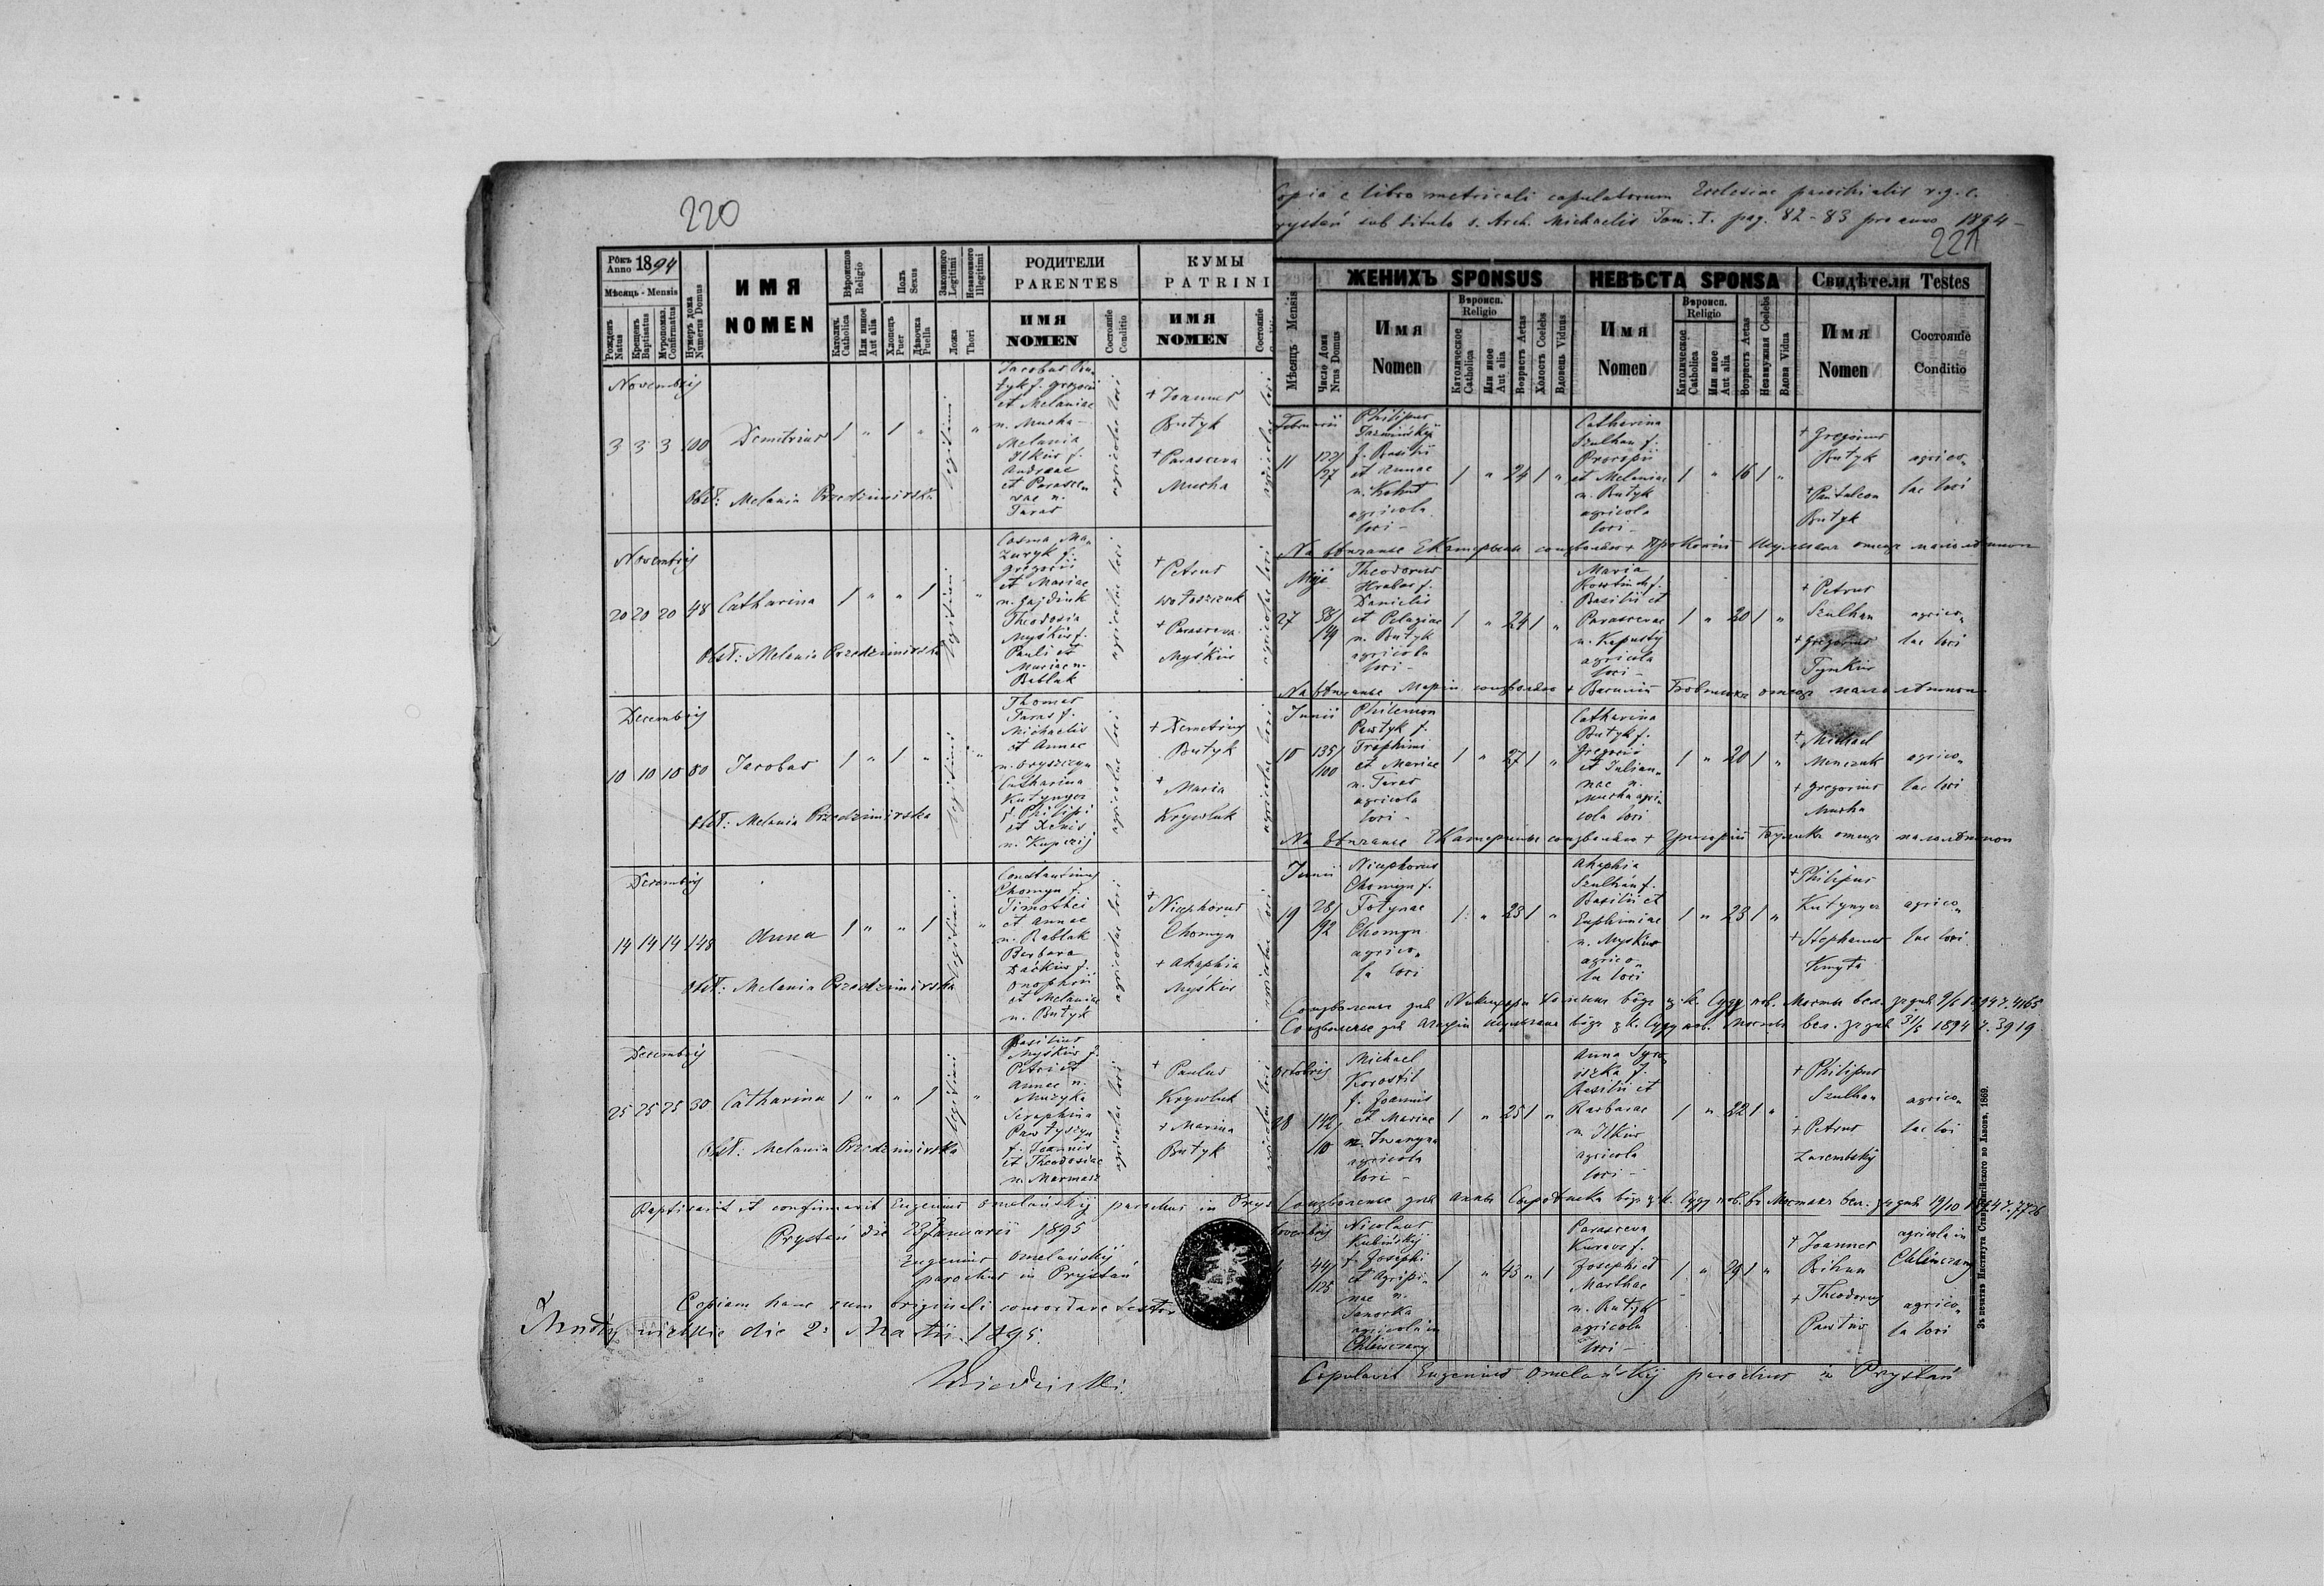 220
Рôкъ Anno 1894
Мѣсяць - Mensis
Рожденъ Natus
Крещенъ Baptisatus
Мѵропомаз. Confirmatus
Нумеръ дома Numerus Domus
ИМЯ
NOMEN
Вѣроисповѣд. Religio
Католич. Catholica
Или инное Aut alia
Полъ Sexus
Хлопець Puer
Дѣвочка Puella
Законного Legitimi
Незаконного Illegitimi
Ложа Thori
РОДИТЕЛИ
PARENTES
ИМЯ
NOMEN
Состояніе Conditio
КУМЫ
PATRINI
ИМЯ
NOMEN
Состояніе
Novembrij
3 3 3 100 Demitrius 1 " 1 "
Legitimi
Jacobus Bu-
tyk f. Gregorii
et Melaniae
n. Mucha -
Melania
Ilkiw f.
Andreae
et Parasce-
vae n.
Taras
agricolae loci
+ Joannes
Butyk
+ Parasceva
Mucha
Obst: Melania Przedzimirska
Novembrij
20 20 20 48 Catharina 1 " " 1
Legitimi
Cosma Ma-
zuryk f.
Gregorii
et Mariae
n. Gajdiuk
Theodosia
Myśkiw f.
Pauli et
Mariae n.
Bablak
agricolae loci
+ Petrus
Wołoszczuk
+ Parasceva
Myśkiw
Obst: Melania Przedzimirska
Decembrij
10 10 10 80 Jacobus 1 " 1 "
Legitimi
Thomas
Taras f.
Michaelis
et Annae
n. Oryszczyn
Catharina
Kutynyez
f. Philipi
et Xenis
n. Kupczij
agricolae loci
+ Demetrius
Butyk
+ Maria
Krywluk
Obst: Melania Przedzimirska
Decembrij
14 14 14 148 Anna 1 " " 1
Legitimi
Constantinus
Chomyn f.
Timothei
et Annae
n. Bablak
Barbara
Daćkiw f.
Onophrii
et Melaniae
n. Butyk
agricolae loci
+ Nicephorus
Chomyn
+ Ahaphia
Myśkiw
Obst: Melania Przedzimirska
Decembrij
25 25 25 30 Catharina 1 " " 1
Legitimi
Basilius
Myśkiw f.
Petri et
Annae n.
Muzyka
Seraphina
Pawłyszyn
f. Joannis
et Theodosiae
n. Marmasz
agricolae loci
+ Paulus
Krywluk
+ Marina
Butyk
Obst: Melania Przedzimirska
Baptisavit et confirmavit Eugenius Omelańskij parochus in Prys
Prystań die 23 Januarii 1895
Eugenius Omelańskij
parochus in Prystań
Copiam hanc cum originali concordare testor
die 2. Martii 1895.
Copia e libro metricali copulatorum Ecclesiae parochialis r.g.c.
Prystań sub titulo s. Arch. Michaelis Tom. I. pag. 82-83 pro anno 1894 -
221
Мѣсяць Mensis
Число Дома Nrus Domus
ЖЕНИХЪ SPONSUS
Имя
Nomen
Вѣроисп. Religio
Католическое Catholica
Или иное Aut alia
Возрастъ Aetas
Холостъ Coelebs
Вдовецъ Viduus
НЕВѢСТА SPONSA
Имя
Nomen
Вѣроисп. Religio
Католическое Catholica
Или иное Aut alia
Возрастъ Aetas
Незамужная Coelebs
Вдова Vidua
Свидѣтели Testes
Имя
Nomen
Состояніе
Conditio
Februarii
11 127/27
Philipus
f. Basilii
et Annae
n. Kohut
agricola
loci -
1 " 24 1 "
Catharina
Szulhan f.
Procopii
et Melaniae
n. Butyk
agricola
loci -
1 " 16 1 "
+ Gregorius
Butyk
+ Pantaleon
Butyk
agrico-
lae loci
На вѣнчанье Екатерины соизволяю + Прокопій Шульган отець малолѣтнои
Maji
27 38/149
Theodorus
Hrabas f.
Danielis
et Pelagiae
n. Butyk
agricola
loci -
1 " 24 1 "
Maria
Bowtiuch f.
Basilii et
Parascevae
n. Kapustij
agricola
loci -
1 " 20 1 "
+ Petrus
Szulhan
+ Gregorius
Tymkiw
agrico-
lae loci
На вѣнчанье Маріи соизволяю + Василій отець малолѣтнои
Junii
10 135/100
Philemon
Pawtyk f.
Trophimi
et Mariae
n. Taras
agricola
loci -
1 " 27 1 "
Catharina
Butyk f.
Gregorii
et Julian-
nae n.
Mucha agri-
cola loci
1 " 20 1 "
+ Michael
Menczuk
+ Gregorius
Mucha
agrico-
lae loci
На вѣнчанье Екатерины соизволяю + Григорій Бутыкъ отець малолѣтнои
Junii
19 28/92
Nicephorus
Chomyn f.
Fotynae
Chomyn
agrico-
la loci
1 " 23 1 "
Ahaphia
Szulhan f.
Basilii et
Euphimiae
n. Myśkiw
agrico-
la loci
1 " 23 1 "
+ Philipus
Kutynyez
+ Stephanus
Kmyta
agrico-
lae loci
Соизволенье для Никифора Хомина вôдъ ц.к. Суду пов. Мосты вел. зъ дня 9/6 1894 ч. 4165
Соизволенье для Агафіи Шульганъ вôдъ ц.к. Суду пов. Мосты вел. зъ дня 31/5 1894 ч. 3919
Octobrij
28 142/10
Michael
Korostil
f. Joannis
et Mariae
n. Iwanyna
agricola
loci -
1 " 25 1 "
Anna Syro-
iszka f.
Basilii et
Barbarae
n. Ilkiw
agricola
loci -
1 " 22 1 "
+ Philipus
Szulhan
+ Petrus
Zarembskij
agrico-
lae loci
Соизволенье для Анны вôдъ ц.к. Суду пов. въ Мостахъ вел. зъ дня 19/10 1894 ч. 7726
Novembrij
44/125
Nicolaus
Kubińskij
f. Josephi
et Agripi-
nae n.
Janorka
agricola in
Chliwczany
1 " 43 " 1
Parasceva
Kurawe f.
Josephi et
Marthae
n. Butyk
agricola
loci -
1 " 29 1 "
+ Joannes
Bihun
+ Theodorus
Pawtiw
agricola in
Chliwczany
agrico-
la loci
Copulavit Eugenius Omelańskij parochus in Prystań
Зъ печатнѣ Института Ставропигійского во Львовѣ, 1869.